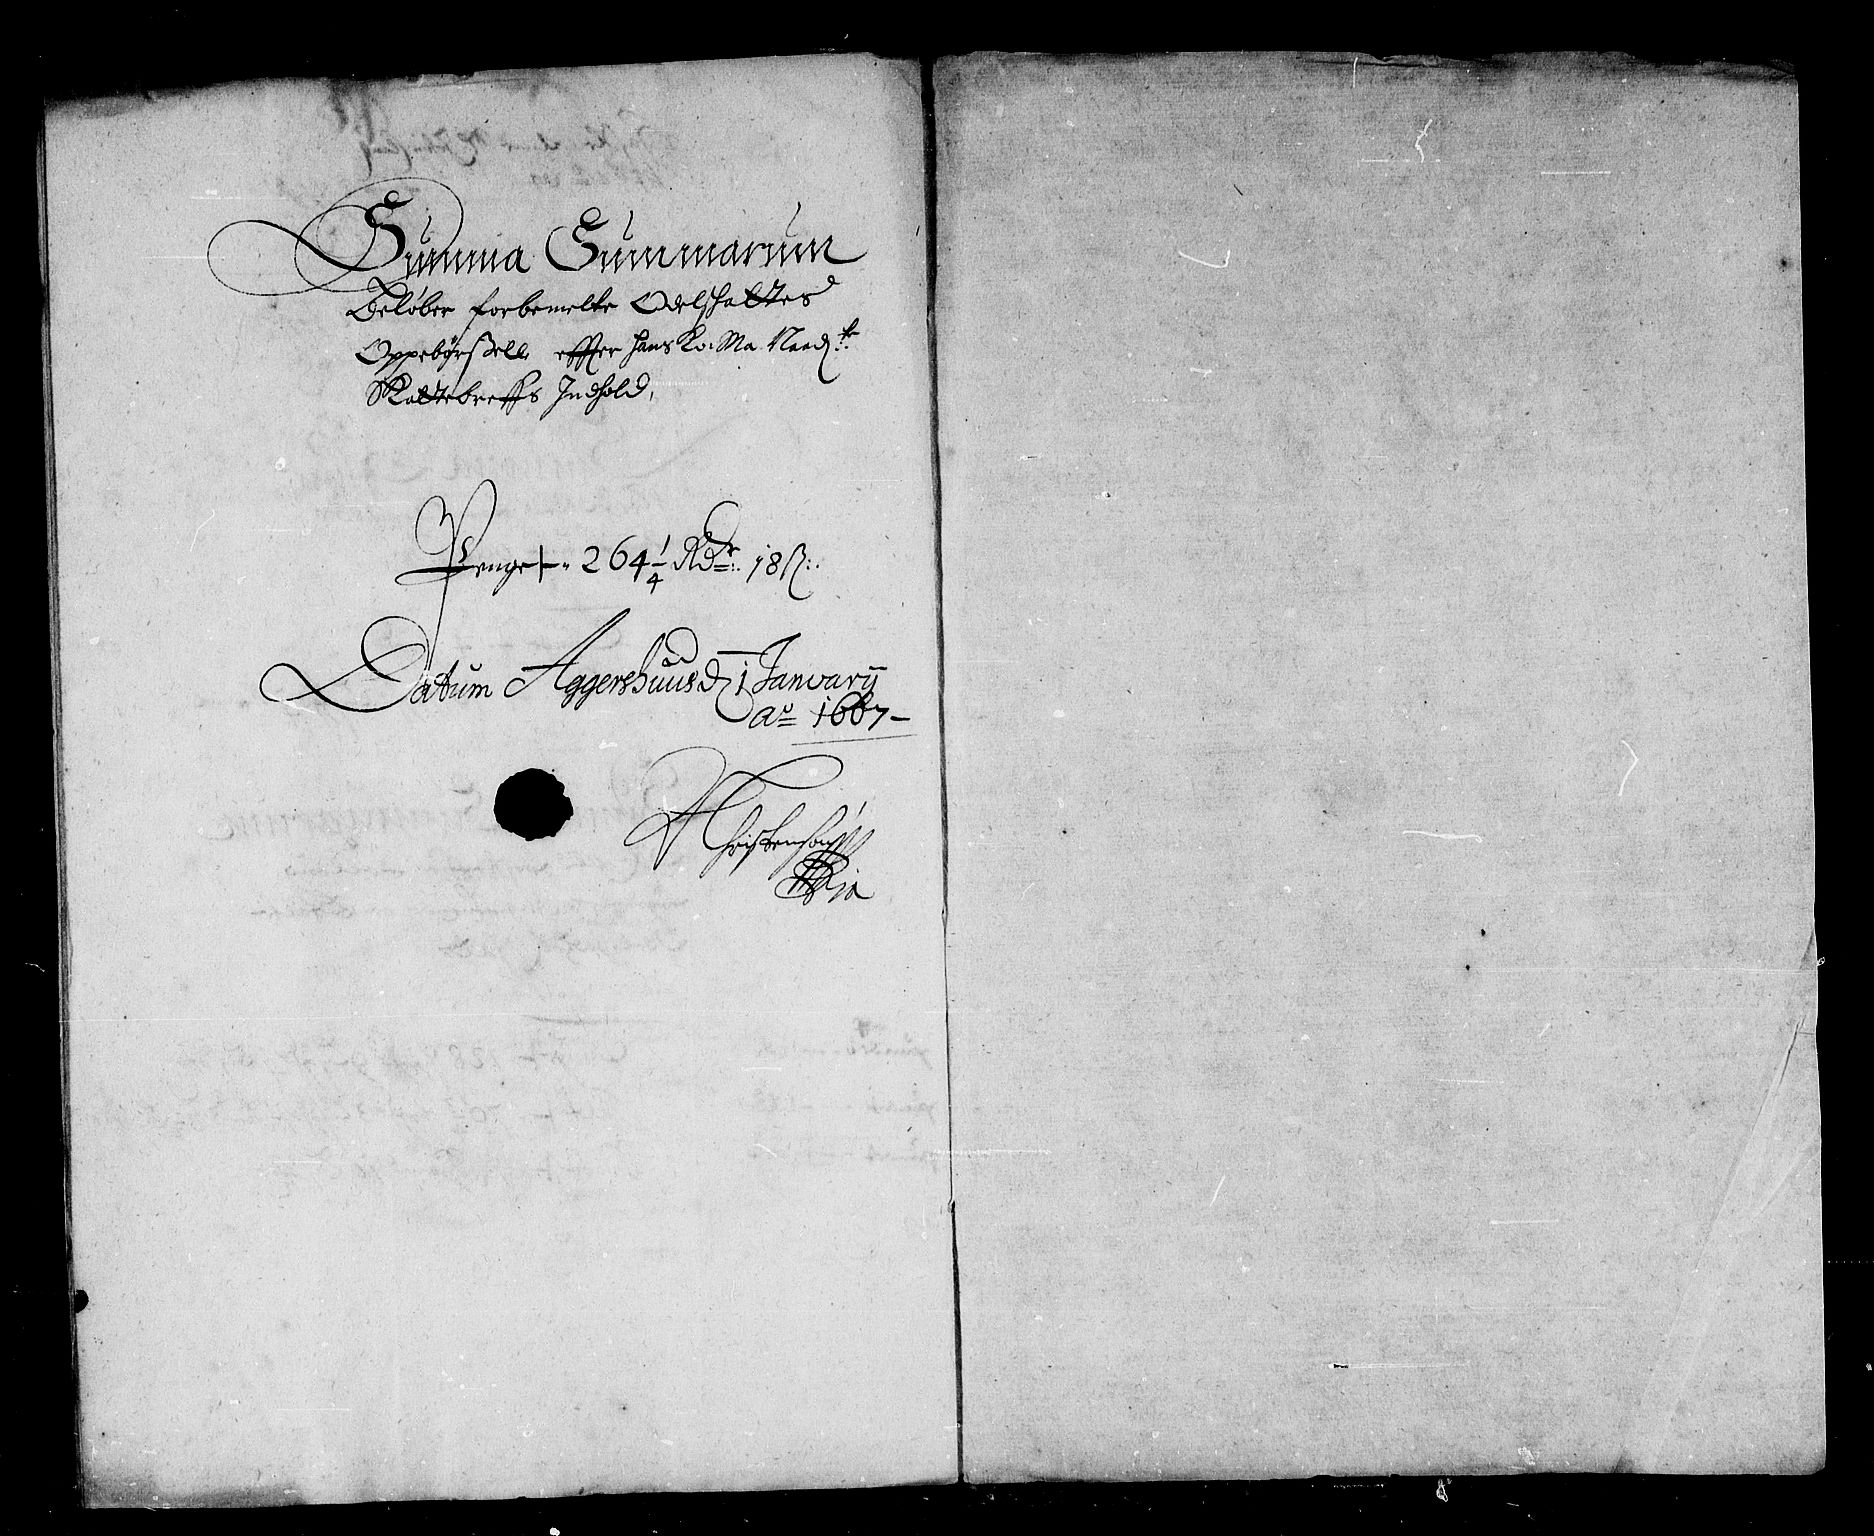 Summa Summarum
Beløber forbemelte Odelskattes
Oppebørsell effter hans Ko: Ma: Naad:
Skattebreffs Indhold,
Penge 264 1/4 Rdr: 18 ß:
Datum Aggershuus d 1 January
ao 1667
Christensøn